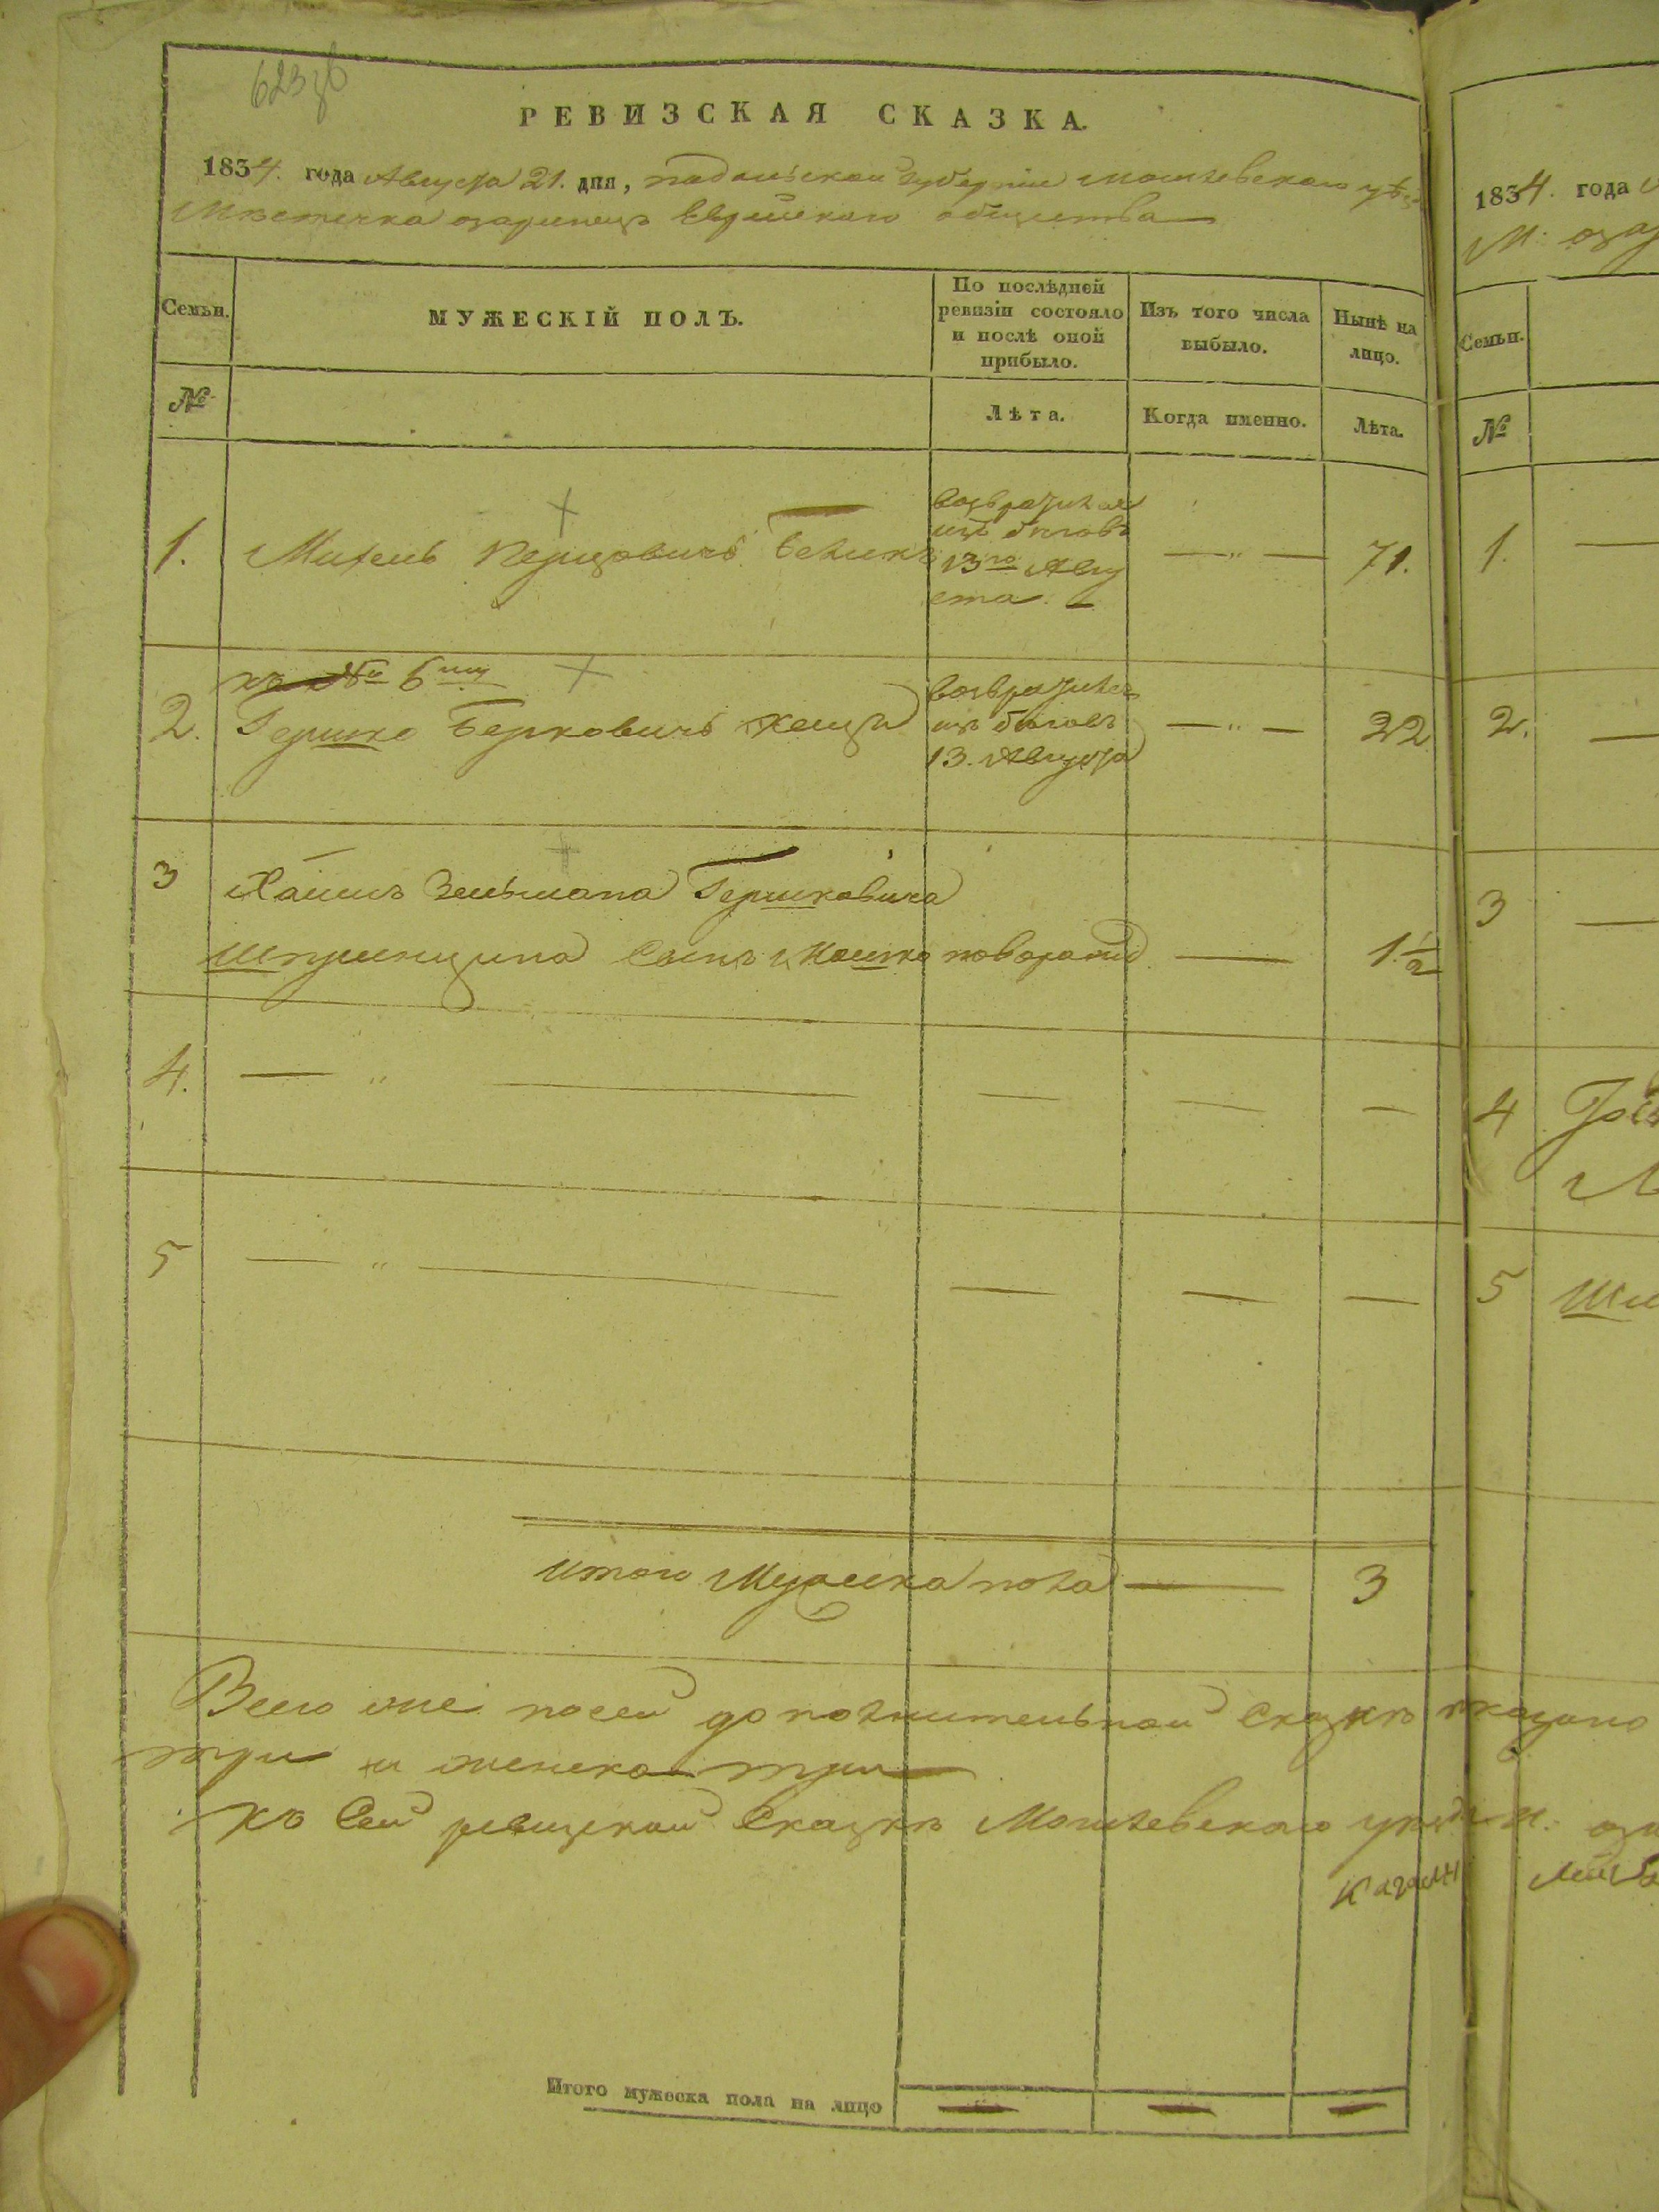 623 зв
РЕВИЗСКАЯ СКАЗКА.
1834. года Августа 21. дня, подольской губернии могилевского уѣз
Мѣстечка озаринецъ Еврейского общества
Семьи.
МУЖЕСКІЙ ПОЛЪ.
По послѣдней ревизіи состояло и послѣ оной прибыло.
Изъ того числа выбыло.
Нынѣ на лицо.
№
Лѣта.
Когда именно.
Лѣта.
1. Михель Перцовичъ возвратился изъ бѣговъ 13го Августа. — " — 71.
къ № 6му
2. Гершко Берковичъ возвратился изъ бѣговъ 13. Августа — " — 22.
3 Хаимъ Зельмана Гершковича
сынъ Мошко новорожд — 1 1/2
4. — " — — — —
5 — " — — — —
итого Мужеска пола — 3
Всего же посей дополнительной сказкѣ показано
три и женска три
Къ Сей ревизской Сказкѣ Могилевского уѣзда м:
Итого мужеска пола на лицо — — —
1834. года
М:
Семьи.
№
1. —
2. —
3 —
4
5